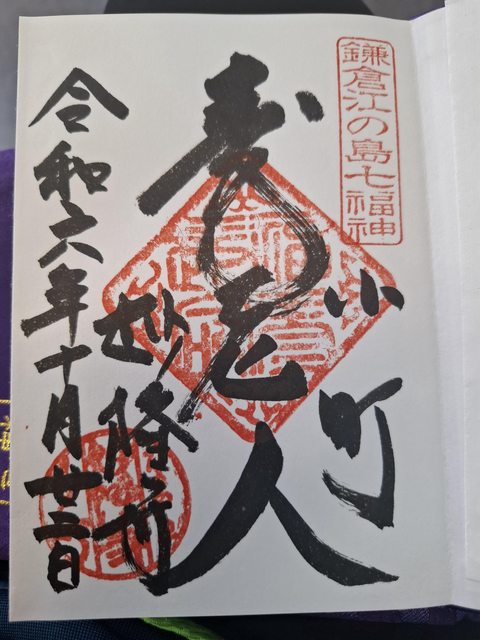 鎌倉江の島七福神
小町
寿老人
妙隆寺
令和六年十月廿三日